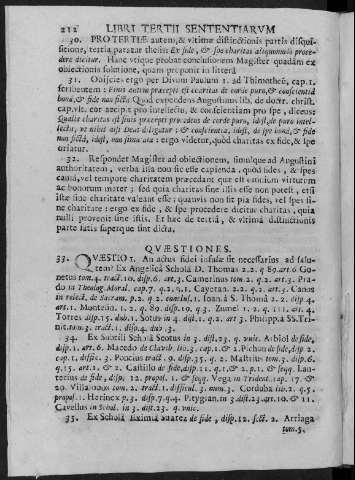 212 LIBRI TERTII SENTENTIARVM
30. PRO TERTIÆ autem, & vltimæ distinctionis partis disqui-
sitione, tertia paratur thesis: Ex fide, & spe charitas aliquomodo proce-
dere dicitur. Hanc vtique probat conclusionem Magister quadam ex
obiectionis solutione, quam proponit in litterâ
31. Obijcit ergo per Diuum Paulum 1. ad Thimotheū, cap.1.
scribentem: Finis autem præcepti est charitas de corde puro, & conscientiâ
bonâ, & fide non fictâ. Quod expendens Augustinus lib. de doctr. christ.
cap.vlt. cor accipit pro intellectu, & conscientiam pro spe, dicens:
Qualis charitas est finis præcepti procedens de corde puro, idest, de puro intel-
lectu, vt nihil nisi Deus diligatur: & conscientia, idest, spe bonâ, & fide
non fictâ, idest, non simulata: ergo videtur, quòd charitas ex fide, & spe
oriatur.
32. Respondet Magister ad obiectionem, simulque ad Augustini
authoritatem, verba ista non sic esse capienda, quòd fides, & spes
causa, vel tempore charitatem præcedant quæ est omnium virtutum
ac bonorum mater; sed quia charitas sine istis esse non potest, etsi
istæ sine charitate valeant esse; quamvis non sit pia fides, vel spes si-
ne charitate: ergo ex fide, & spe procedere dicitur charitas, quia
nulli provenit sine istis. Et hæc de tertiâ, & vltimâ distinctionis
parte latis superque sint dicta.
QVÆSTIONES.
33. QVÆSTIO 1. An actus fidei infusæ sit necessarius ad salu-
tem? Ex Angelicâ Scholâ D. Thomas 2.2. q 89. art.6 Go-
netus tom.4. tract.10. disp.6. art.3. Camerinus tom. 2. q.2. art.3. Pra-
do in Theolog. Moral. cap.7. q.2. §.1. Cayetan. 2.2. q.2. art.3. Canus
in relect. de Sacram. p.2. q.2. conclus.1. Ioan.à S. Thomâ 2.2. disp.4.
art.1. Montesin. 1.2. q.89. disp.19. q 3. Zumel 1.2. q.111. art.4.
Torres disp.15. dub.1. Sotus in 4. dist.1. q.2. art 3. Philipp.à SS.Tri-
nit. tom.3. tract.1. disp.4. dub.3.
34. Ex Subtili Scholâ Scotus in 3. dist.23. q. vnic. Arbiol de fide,
disp.1. art.6. Macedo de Clavib. lib.3. cap.1. & 2. Pichon de fide, disp 2.
cap.1. diffic. 3. Poncius tract. 9. disp.35. q.2. Mastrius tom.3. disp.6.
q.15. art.1, & 2. Castillo de fide, disp.11. q.1, & 2. p.1. & seqq. Lau-
terius de fide, disp. 12. propos. 1. & seqq. Vega in Trident. cap. 17. &
20. Villalobos tom. 2. tract.1. difficul. 3. num. 3. Corduba lib.2. q.5.
propos.1. Herincx p.3. disp.7. q.4. Pitygian. in 3. dist.23. art.10. & 11.
Cavellus in Schol. in 3. dist.23. q. vnic.
35. Ex Scholâ Eximiâ Suarez de fide, disp.12. sect. 2. Arriaga
tom.5.